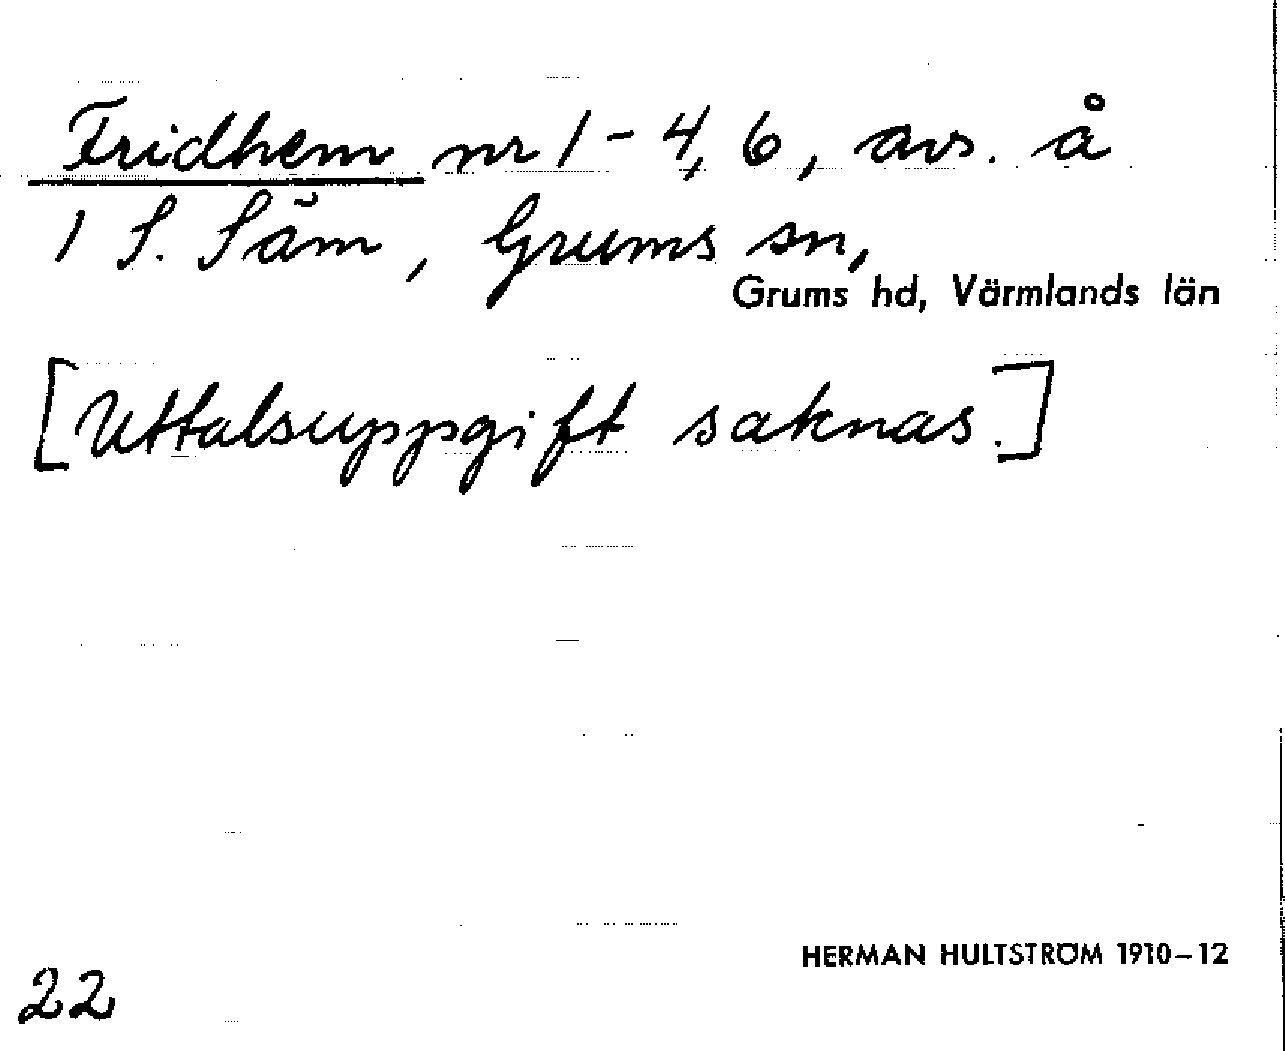 Fridhem nr 1-4, 6, avs. å
1 S. Säm, Grums sn,
Grums hd, Värmlands län
[Uttalsuppgift saknas.]
HERMAN HULTSTRÖM 1910–12
22